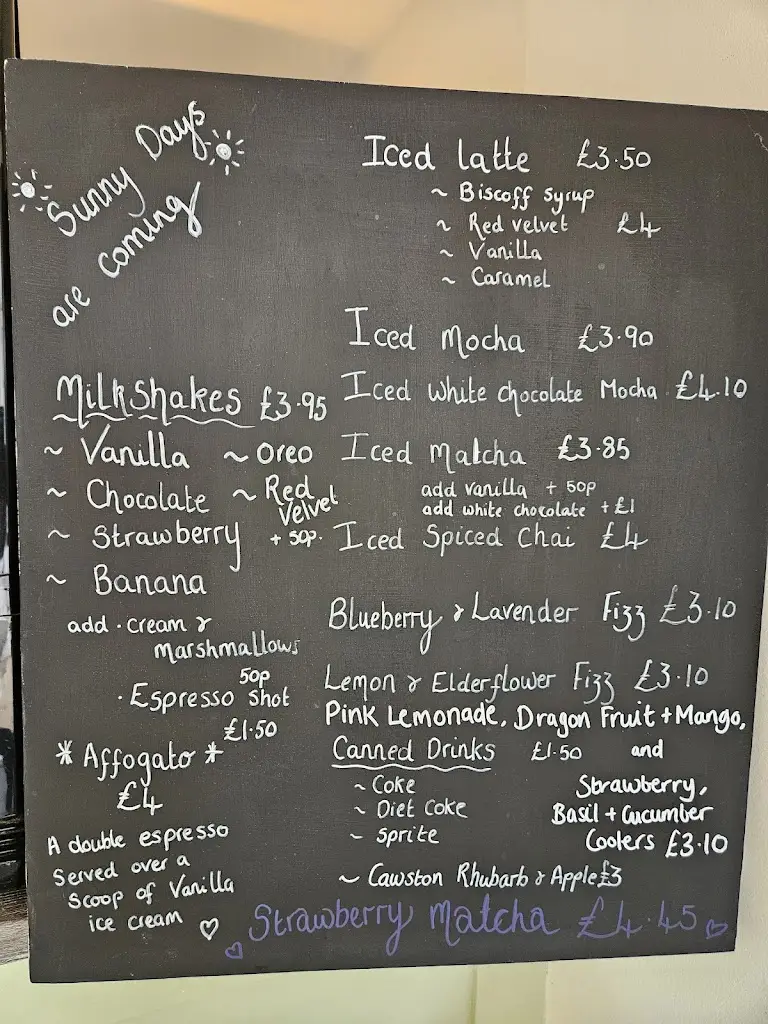 Sunny Days
are coming
Milkshakes £3.95
~ Vanilla ~ Oreo
~ Chocolate ~ Red Velvet
~ Strawberry + 50p.
~ Banana
add · cream & marshmallows
50p
· Espresso shot
£1.50
* Affogato *
£4
A double espresso
Served over a
Scoop of Vanilla
ice cream
Iced latte £3.50
~ Biscoff syrup
~ Red velvet £4
~ Vanilla
~ Caramel
Iced Mocha £3.90
Iced white chocolate Mocha £4.10
Iced Matcha £3.85
add vanilla + 50p
add white chocolate + £1
Iced Spiced Chai £4
Blueberry & Lavender Fizz £3.10
Lemon & Elderflower Fizz £3.10
Pink Lemonade, Dragon Fruit + Mango,
and
Strawberry,
Basil + Cucumber
Coolers £3.10
Canned Drinks £1.50
~ Coke
~ Diet Coke
~ Sprite
~ Cawston Rhubarb & Apple £3
Strawberry Matcha £4.45